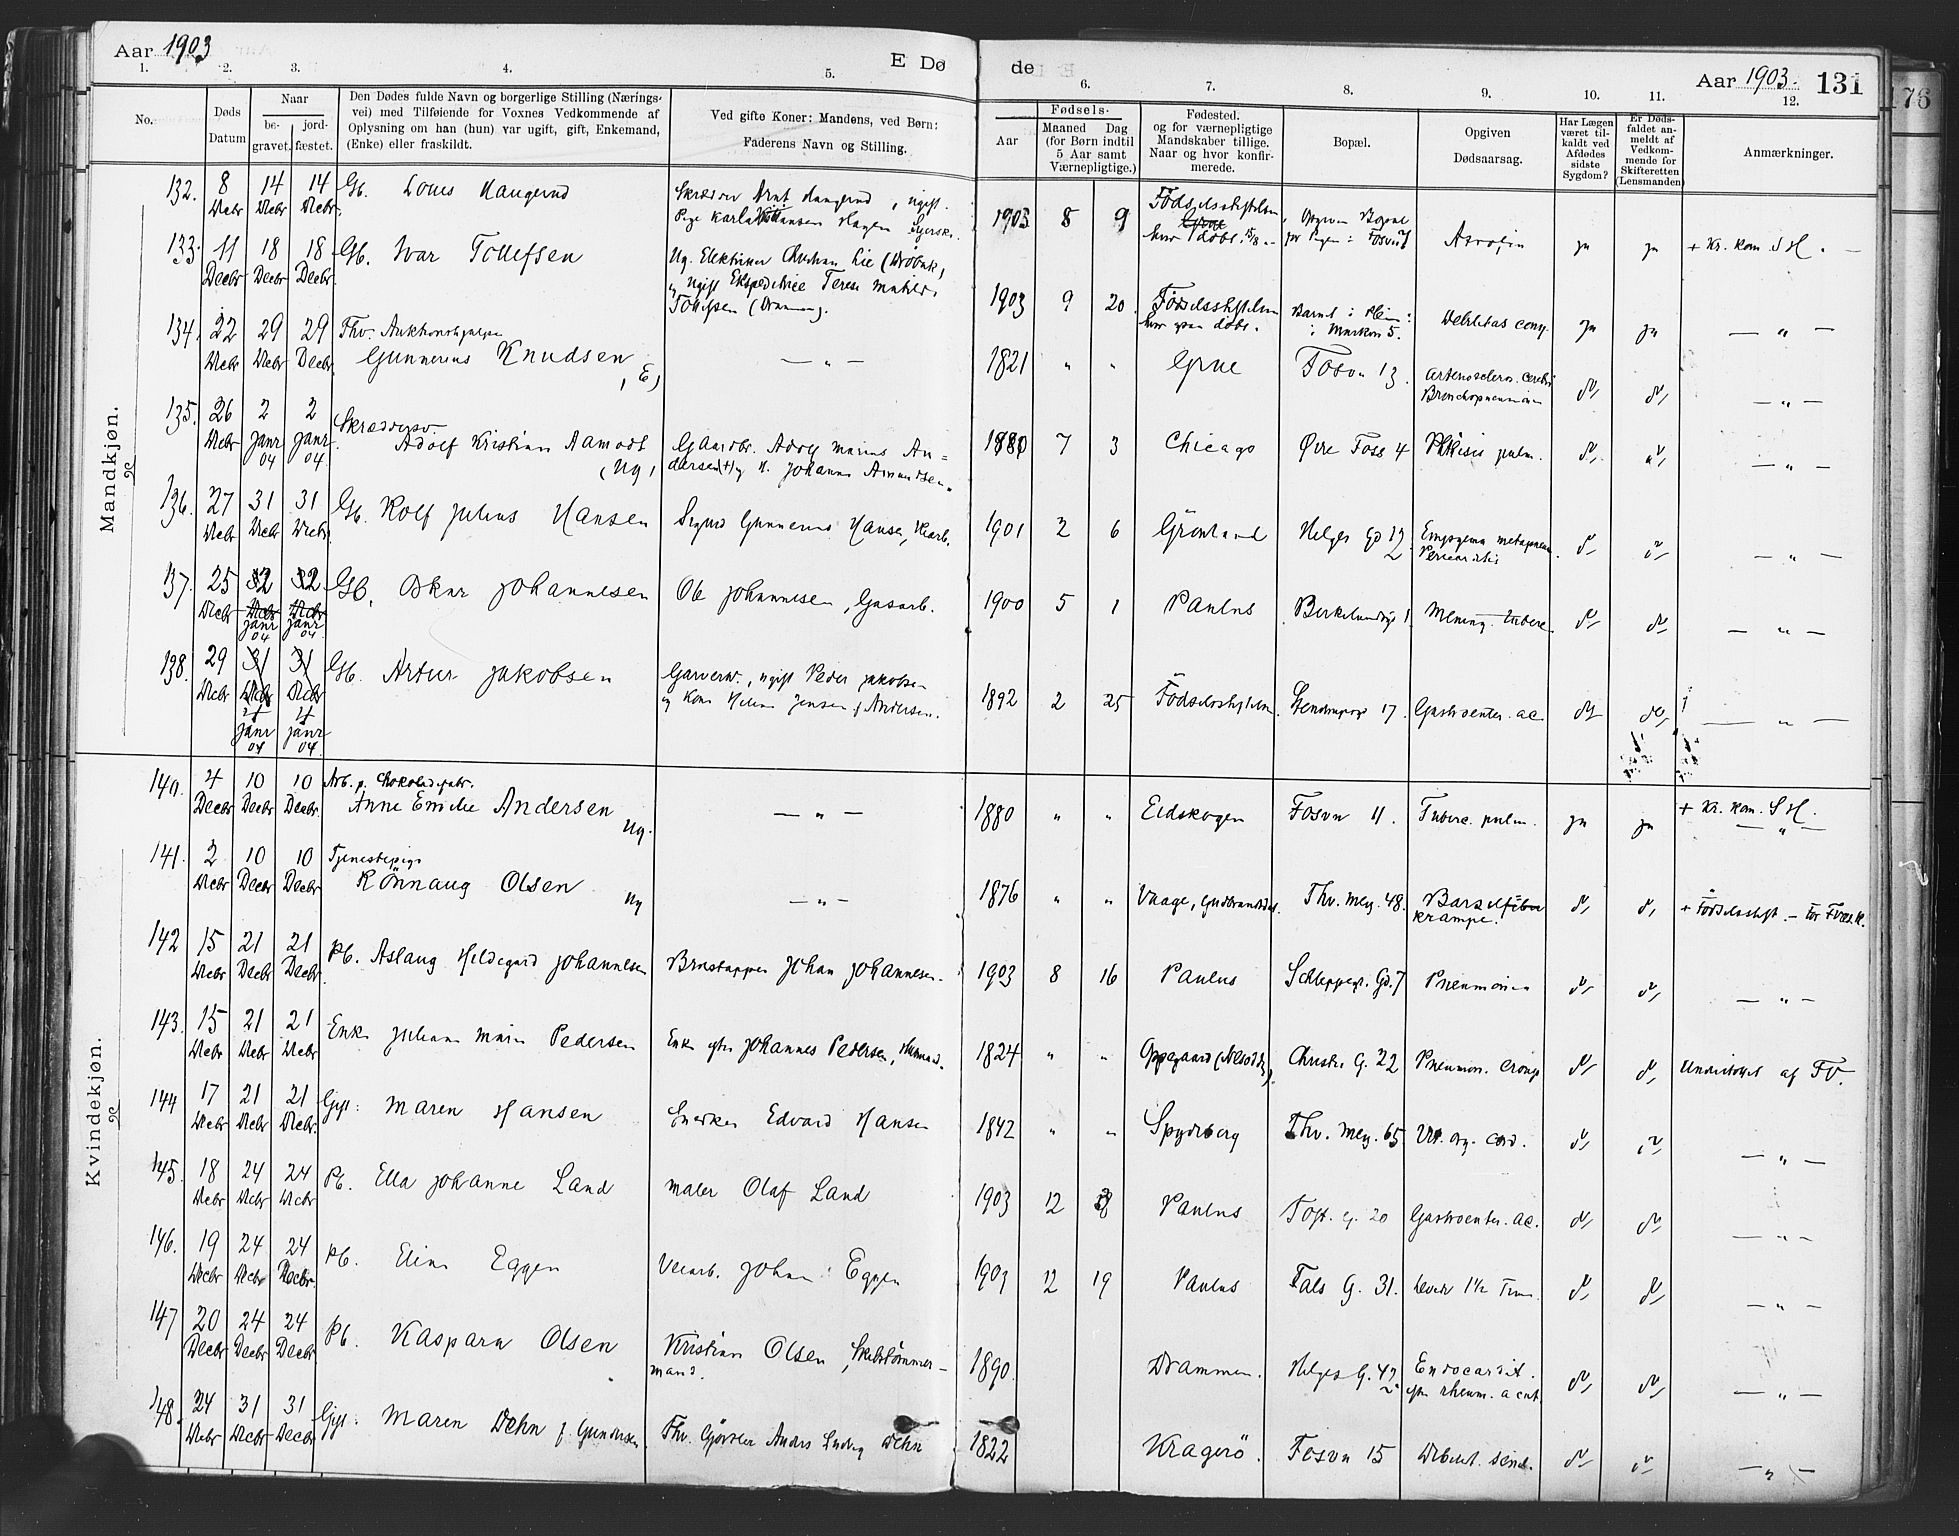 Aar 1903
E Dø
de
Aar 1903.
131
176
1. 2. 3. 4. 5. 6. 7. 8. 9. 10. 11. 12.
No.
Døds Datum
Naar
be-gravet.
jord-fæstet.
Den Dødes fulde Navn og borgerlige Stilling (Nærings-
vei) med Tilføiende for Voxnes Vedkommende af
Oplysning om han (hun) var ugift, gift, Enkemand,
(Enke) eller fraskildt.
Ved gifte Koner: Mandens, ved Børn:
Faderens Navn og Stilling.
Fødsels-
Aar
Maaned Dag
(for Børn indtil
5 Aar samt
Værnepligtige.)
Fødested.
og for værnepligtige
Mandskaber tillige.
Naar og hvor konfir-
merede.
Bopæl.
Opgiven
Dødsaarsag.
Har Lægen
været til-
kaldt ved
Afdødes
sidste
Sygdom?
Er Døds-
faldet an-
meldt af
Vedkom-
mende for
Skifteretten
(Lensmanden)
Anmærkninger.
Mandkjøn.
132. 8 Decbr 14 Decbr 14 Decbr Gb. Louis Haugerud
1903 8 9 Fødselsstiftelsen ja ja + Kr. kom. S H.
133. 11 Decbr 18 Decbr 18 Decbr Gb. Ivar Tollefsen
Ug. Elektriker Christian Lie (Drøbak)
og ugift Ekspeditrice Terese Mathilde
Tollefsen (Drammen).
1903 9 20 Fødselsstiftelsen Debilitas cong. ja ja — " —
134. 22 Decbr 29 Decbr 29 Decbr Fhv. Auktionshjælper
Gunnerius Knudsen, E, — " —
1821 " " Grue Fosvn 13. Arterioscleros. cerebri
Bronchopneumoni d, d, — " —
135. 26 Decbr 2 Janr 04 2 Janr 04. Skræddersv.
Adolf Kristian Aamodt (Ug,
Gaardbr. Adolf Marius An-
dersen
1880 7 3 Chicago Øvre Foss 4 Phthisis pulm. d, d, — " —
136. 27 Decbr 31 Decbr 31 Decbr. Gb. Rolf Julius Hansen Sigurd Gunnerius Hansen,
1901 2 6 Grønland Helges Gd 12 Empyema metapneum.
Pericarditis d, d, — " —
137. 25 Decbr 2 Janr 04 2 Janr 04. Gb. Oskar Johannesen Ole Johannesen, Gasarb.
1900 5 1 Paulus Birkelundsg. 1 Mening. tuberc. d, d, — " —
138. 29 Decbr 31 Decbr 4 Janr 04 31 Decbr 4 Janr 04. Gb. Artur Jakobsen
Garversv., ugift Peder Jakobsen
og Kone Helene Jensen f. Andersen.
1892 2 25 Fødselsstiftelsen Stenstrupgd 17. Gastroenter. ac. d, d, — " —
Kvindekjøn.
140. 4 Decbr 10 Decbr 10 Decbr. Arb. p. Chokoladefabr.
Anne Emilie Andersen Ug. — " —
1880 " " Eidskogen Fosvn 11. Tuberc. pulm. ja ja + Kr. kom. S H.
— " —
141. 2 Decbr 10 Decbr 10 Decbr Tjenestepige
Rønnaug Olsen Ug — " —
1876 " " Vaage, Gudbrandsdal. Thv. Mey. 48. Barselfeber
krampe. d, d, + Fødselsstift.
142 15 Decbr 21 Decbr 21 Decbr. Pb. Aslaug Hildegard Johannesen Brøstapper Johan Johannesen.
1903 8 16 Paulus Schleppegr. Gd. 7 Pneumonia d, d, — " —
143. 15 Decbr 21 Decbr 21 Decbr Enke Juliane Marie Pedersen Enke efter Johannes Pedersen, Husmand.
1824 " " Oppegaard (Nesodden). Christies G. 22 Pneumon. croup. d, d, Understøttet af FV.
144 17 Decbr 21 Decbr 21 Decbr. Gift: Maren Hansen Snedker Edvard Hansen
1842 " " Spydeberg Thv. Mey. 65 Vit. org. cord. d, d, — " —
145. 18 Decbr 24 Decbr 24 Decbr Pb. Ella Johanne Land Maler Olaf Land
1903 12 Paulus Toft. g. 20 Gastroenter. ac. d, d, — " —
146. 19 Decbr 24 Decbr 24 Decbr Pb. Elina Eggen Johan Eggen
1903 12 19 Paulus Fals G. 31. Levede 1½ Time. d, d, — " —
147 20 Decbr 24 Decbr 24 Decbr Pb. Kaspara Olsen Kristian Olsen, Skibstømmer-
mand.
1890. Drammen. Helges G. 42 Endocardit.
eft. rheum. acut. d, d, — " —
148. 24 Decbr 31 Decbr 31 Decbr Gift: Maren Dehn f. Gundersen. Fhv. Gjørtler Anders Ludvig Dehn
1822 Kragerø. Fosvn 15 Debilit. senil. d, d, — " —